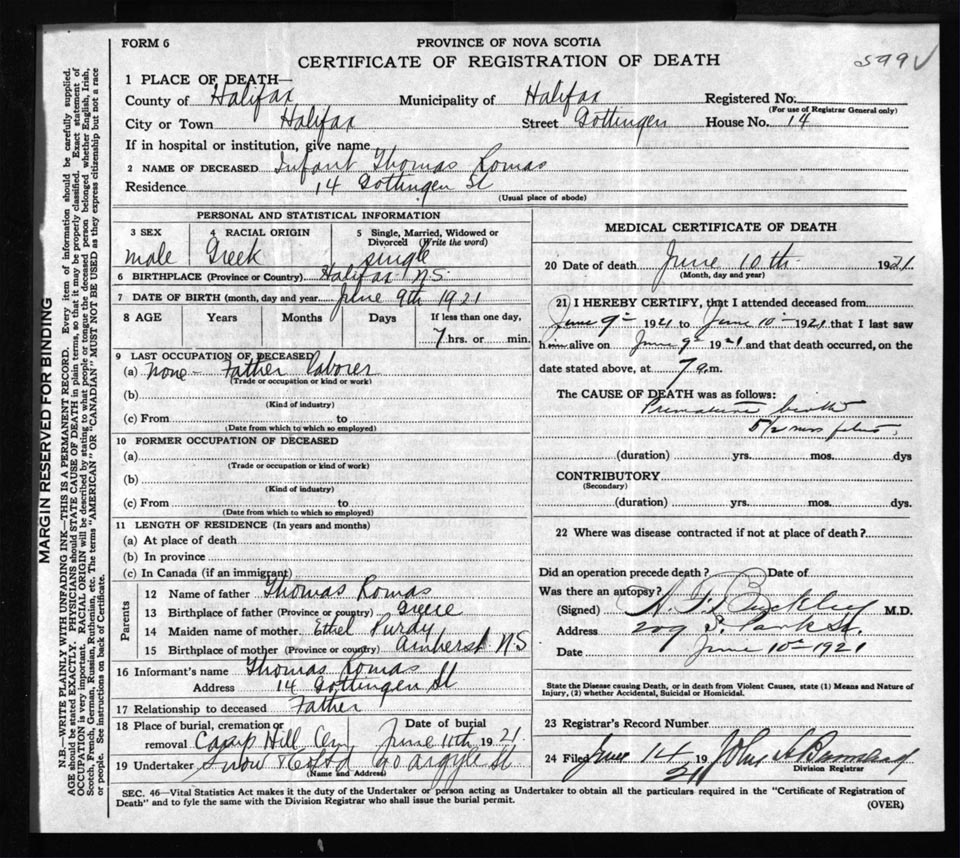 FORM 6
PROVINCE OF NOVA SCOTIA
CERTIFICATE OF REGISTRATION OF DEATH
599
1 PLACE OF DEATH—
County of Halifax Municipality of Halifax Registered No.
(For use of Registrar General only)
City or Town Halifax Street Gottingen House No. 14
If in hospital or institution, give name
2 NAME OF DECEASED Infant Thomas Romas
Residence 14 Gottingen St
(Usual place of abode)
PERSONAL AND STATISTICAL INFORMATION
3 SEX 4 RACIAL ORIGIN 5 Single, Married, Widowed or Divorced (Write the word)
male Greek single
6 BIRTHPLACE (Province or Country) Halifax N.S.
7 DATE OF BIRTH (month, day and year) June 9th 1921
8 AGE Years Months Days If less than one day,
7 hrs. or min.
9 LAST OCCUPATION OF DECEASED
(a) None - Father laborer
(Trade or occupation or kind or work)
(b)
(Kind of industry)
(c) From to
(Date from which to which so employed)
10 FORMER OCCUPATION OF DECEASED
(a)
(Trade or occupation or kind of work)
(b)
(Kind of industry)
(c) From to
(Date from which to which so employed)
11 LENGTH OF RESIDENCE (In years and months)
(a) At place of death
(b) In province
(c) In Canada (if an immigrant)
Parents
12 Name of father Thomas Romas
13 Birthplace of father (Province or country) Greece
14 Maiden name of mother Ethel Purdy
15 Birthplace of mother (Province or country) Amherst N.S
16 Informant's name Thomas Romas
Address 14 Gottingen St
17 Relationship to deceased Father
18 Place of burial, cremation or Date of burial
removal Camp Hill Cem June 10th 1921
19 Undertaker Snow & Co Ltd 90 Argyle St
(Name and Address)
MEDICAL CERTIFICATE OF DEATH
20 Date of death June 10th 1921
(Month, day and year)
21 I HEREBY CERTIFY, that I attended deceased from
June 9th 1921 to June 10th 1921 that I last saw
him alive on June 9th 1921 and that death occurred, on the
date stated above, at 7 a.m.
The CAUSE OF DEATH was as follows:
Premature birth
5½ mos
(duration) yrs. mos. dys
CONTRIBUTORY
(Secondary)
(duration) yrs. mos. dys.
22 Where was disease contracted if not at place of death?
Did an operation precede death? Date of
Was there an autopsy?
(Signed) Buckley M.D.
Address 209 S. Park St.
Date June 10th 1921
State the Disease causing Death, or in death from Violent Causes, state (1) Means and Nature of
Injury, (2) whether Accidental, Suicidal or Homicidal.
23 Registrar's Record Number
24 Filed June 14 1921 John
Division Registrar
SEC. 46—Vital Statistics Act makes it the duty of the Undertaker or person acting as Undertaker to obtain all the particulars required in the "Certificate of Registration of
Death" and to fyle the same with the Division Registrar who shall issue the burial permit.
(OVER)
MARGIN RESERVED FOR BINDING
N.B.—WRITE PLAINLY WITH UNFADING INK—THIS IS A PERMANENT RECORD. Every item of information should be carefully supplied.
AGE should be stated EXACTLY. PHYSICIANS should STATE CAUSE OF DEATH in plain terms, so that it may be properly classified. Exact statement of
OCCUPATION is very important. RACIAL ORIGIN will be described by stating to what people or tongue the deceased person belonged whether English, Irish,
Scotch, French, German, Russian, Ruthenian, etc. The terms "AMERICAN" OR "CANADIAN" MUST NOT BE USED as they express citizenship but not a race
or people. See instructions on back of Certificate.